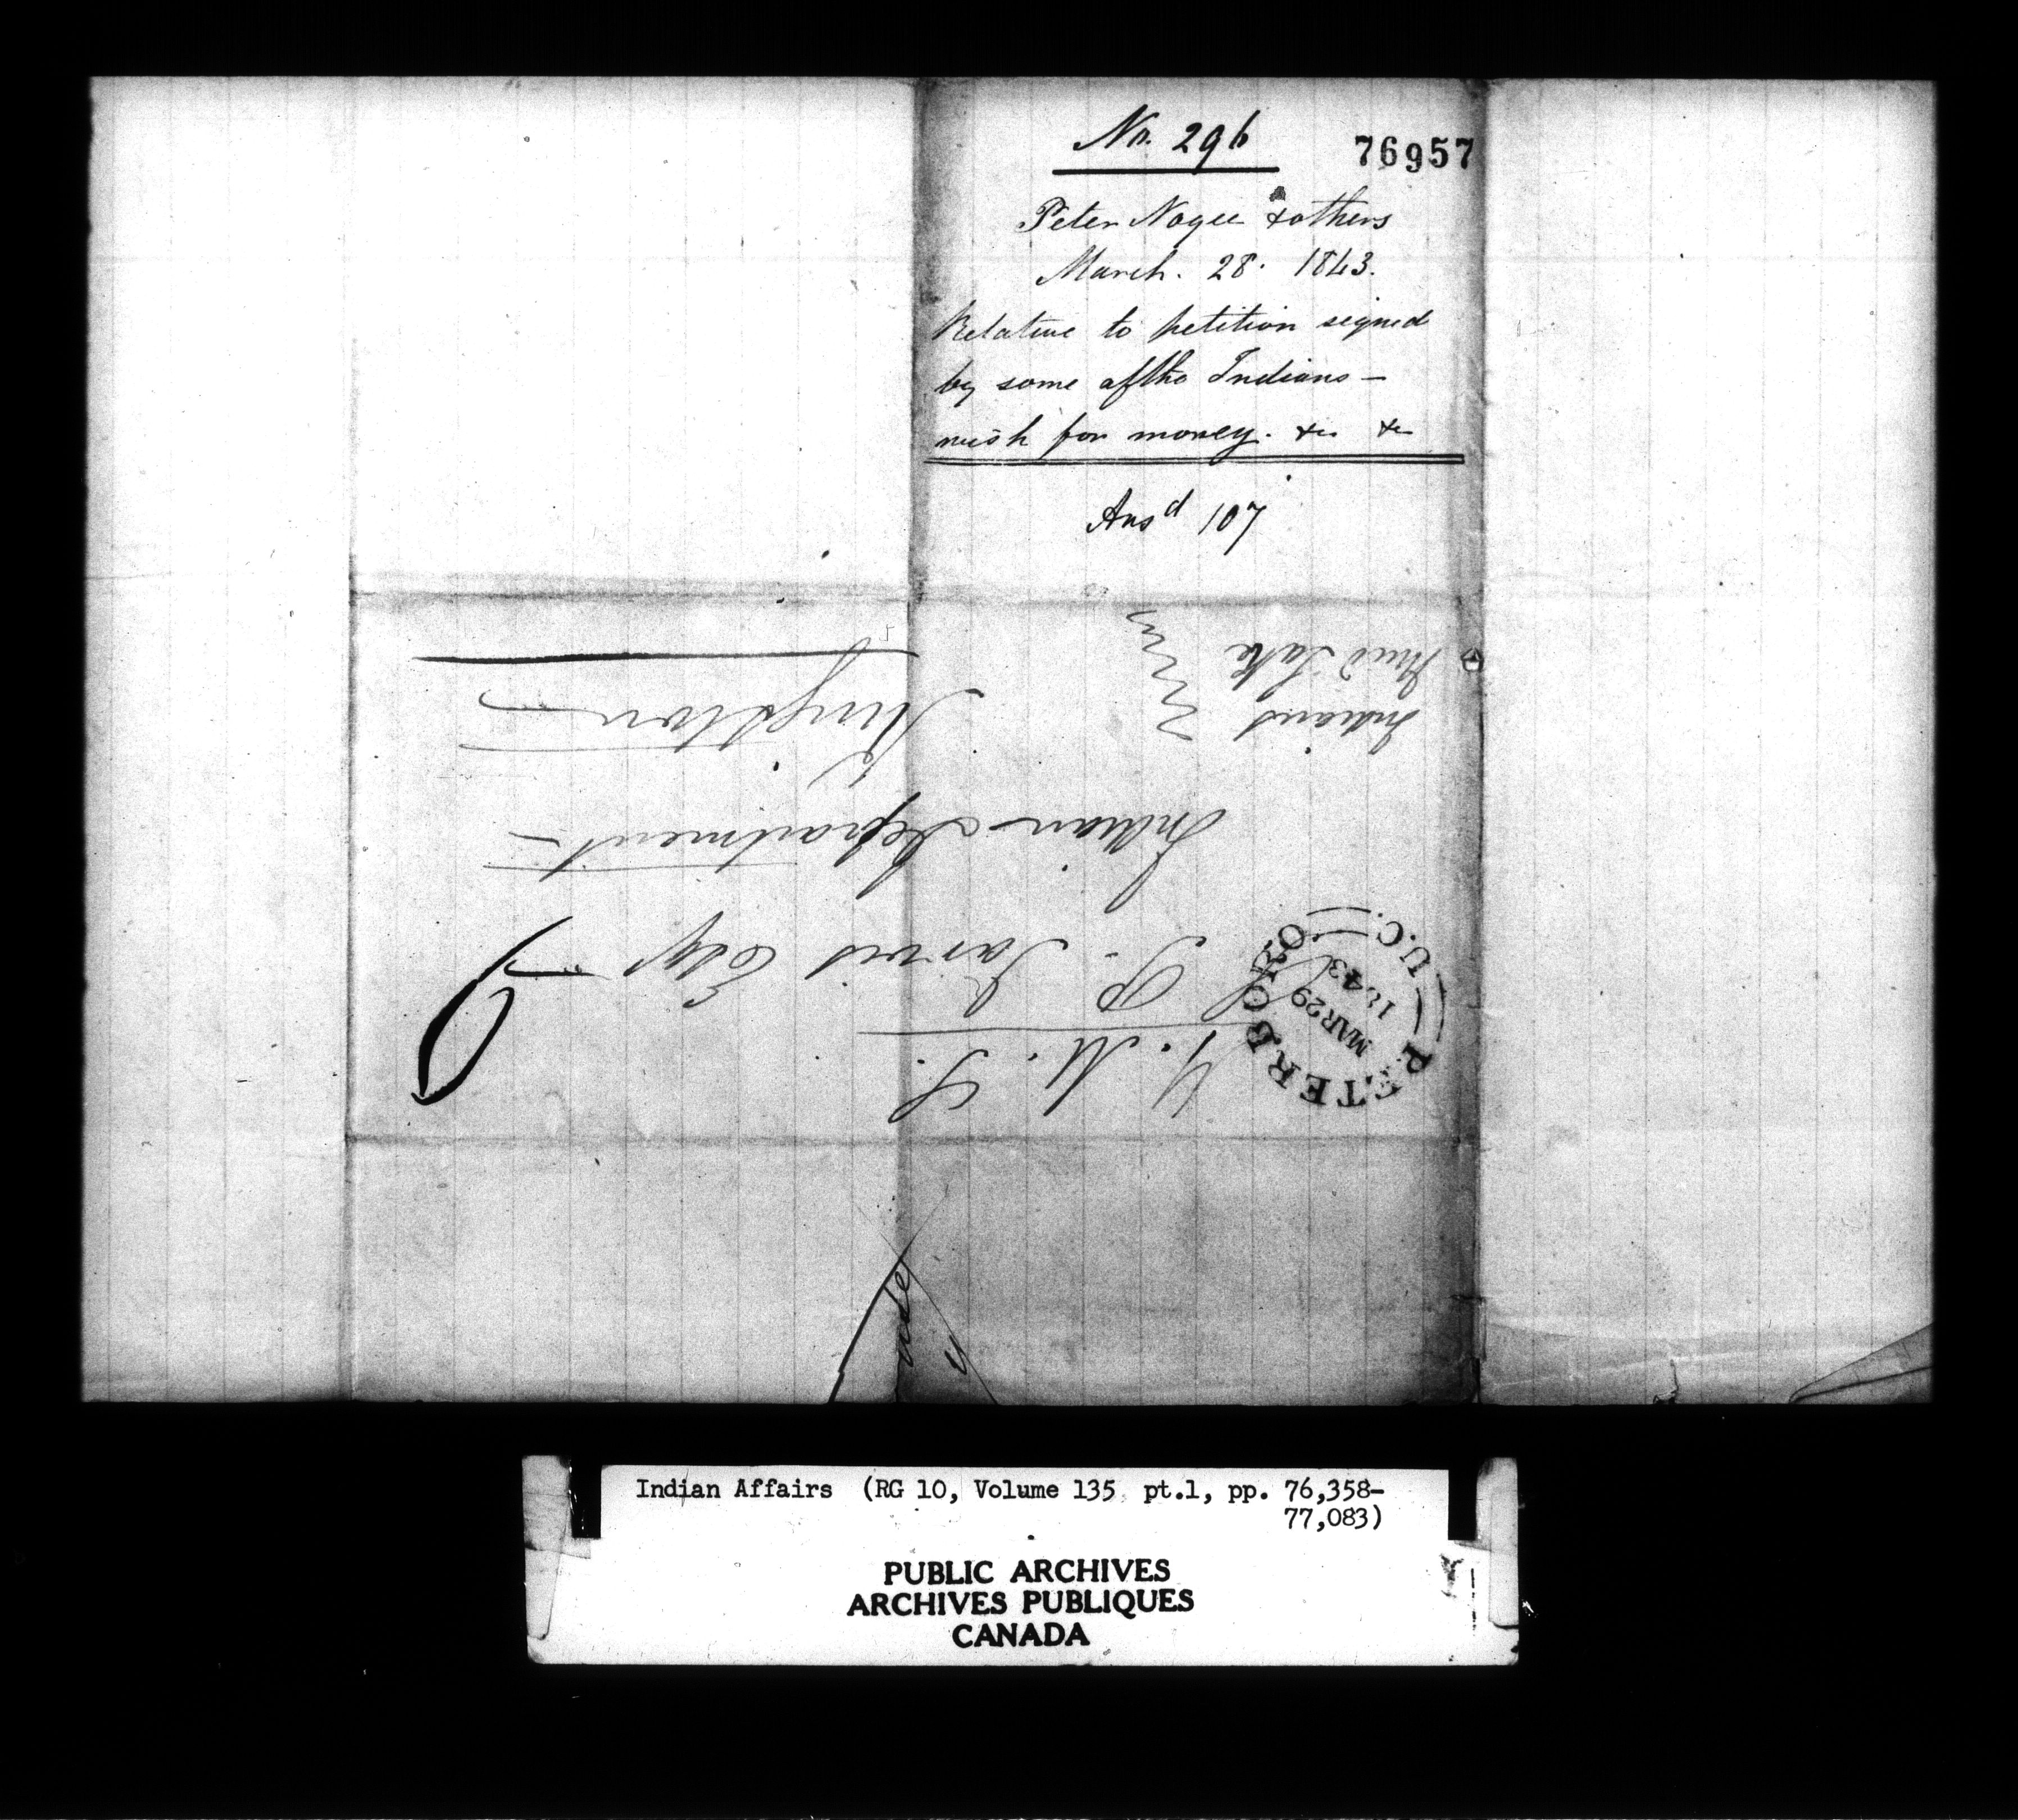 No. 296
76957
Peter Nogee & others
March. 28. 1843.
Relative to petition signed
by some of the Indians —
wish for money. &c &c
Ansd 107
H. M. S.
S. P. Jarvis Esqr
Indian Department
Kingston
Indians
Mud Lake
PETERBORO
U.C.
MAR 29
1843
Indian Affairs (RG 10, Volume 135 pt.1, pp. 76,358-
77,083)
PUBLIC ARCHIVES
ARCHIVES PUBLIQUES
CANADA